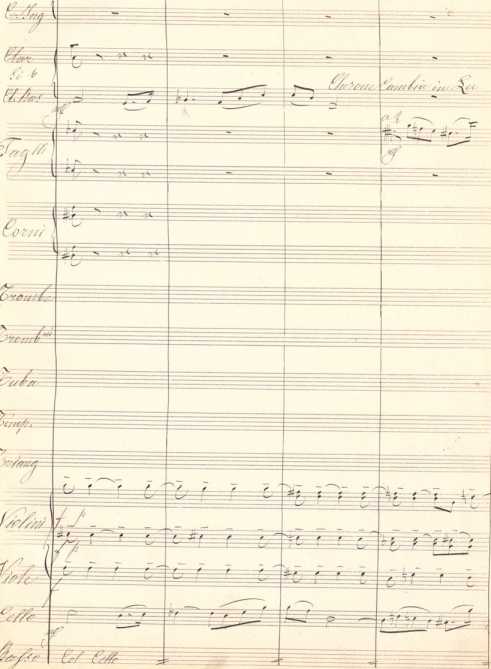 C. Ing
Clar.
Si b
Cl. Bas.
Clarone Cambia in La
a 2
Fag tti
Corni
Trombe
Tromb ni
Tuba
Timp.
Violini
Viole
Cello
Basso Col Cello